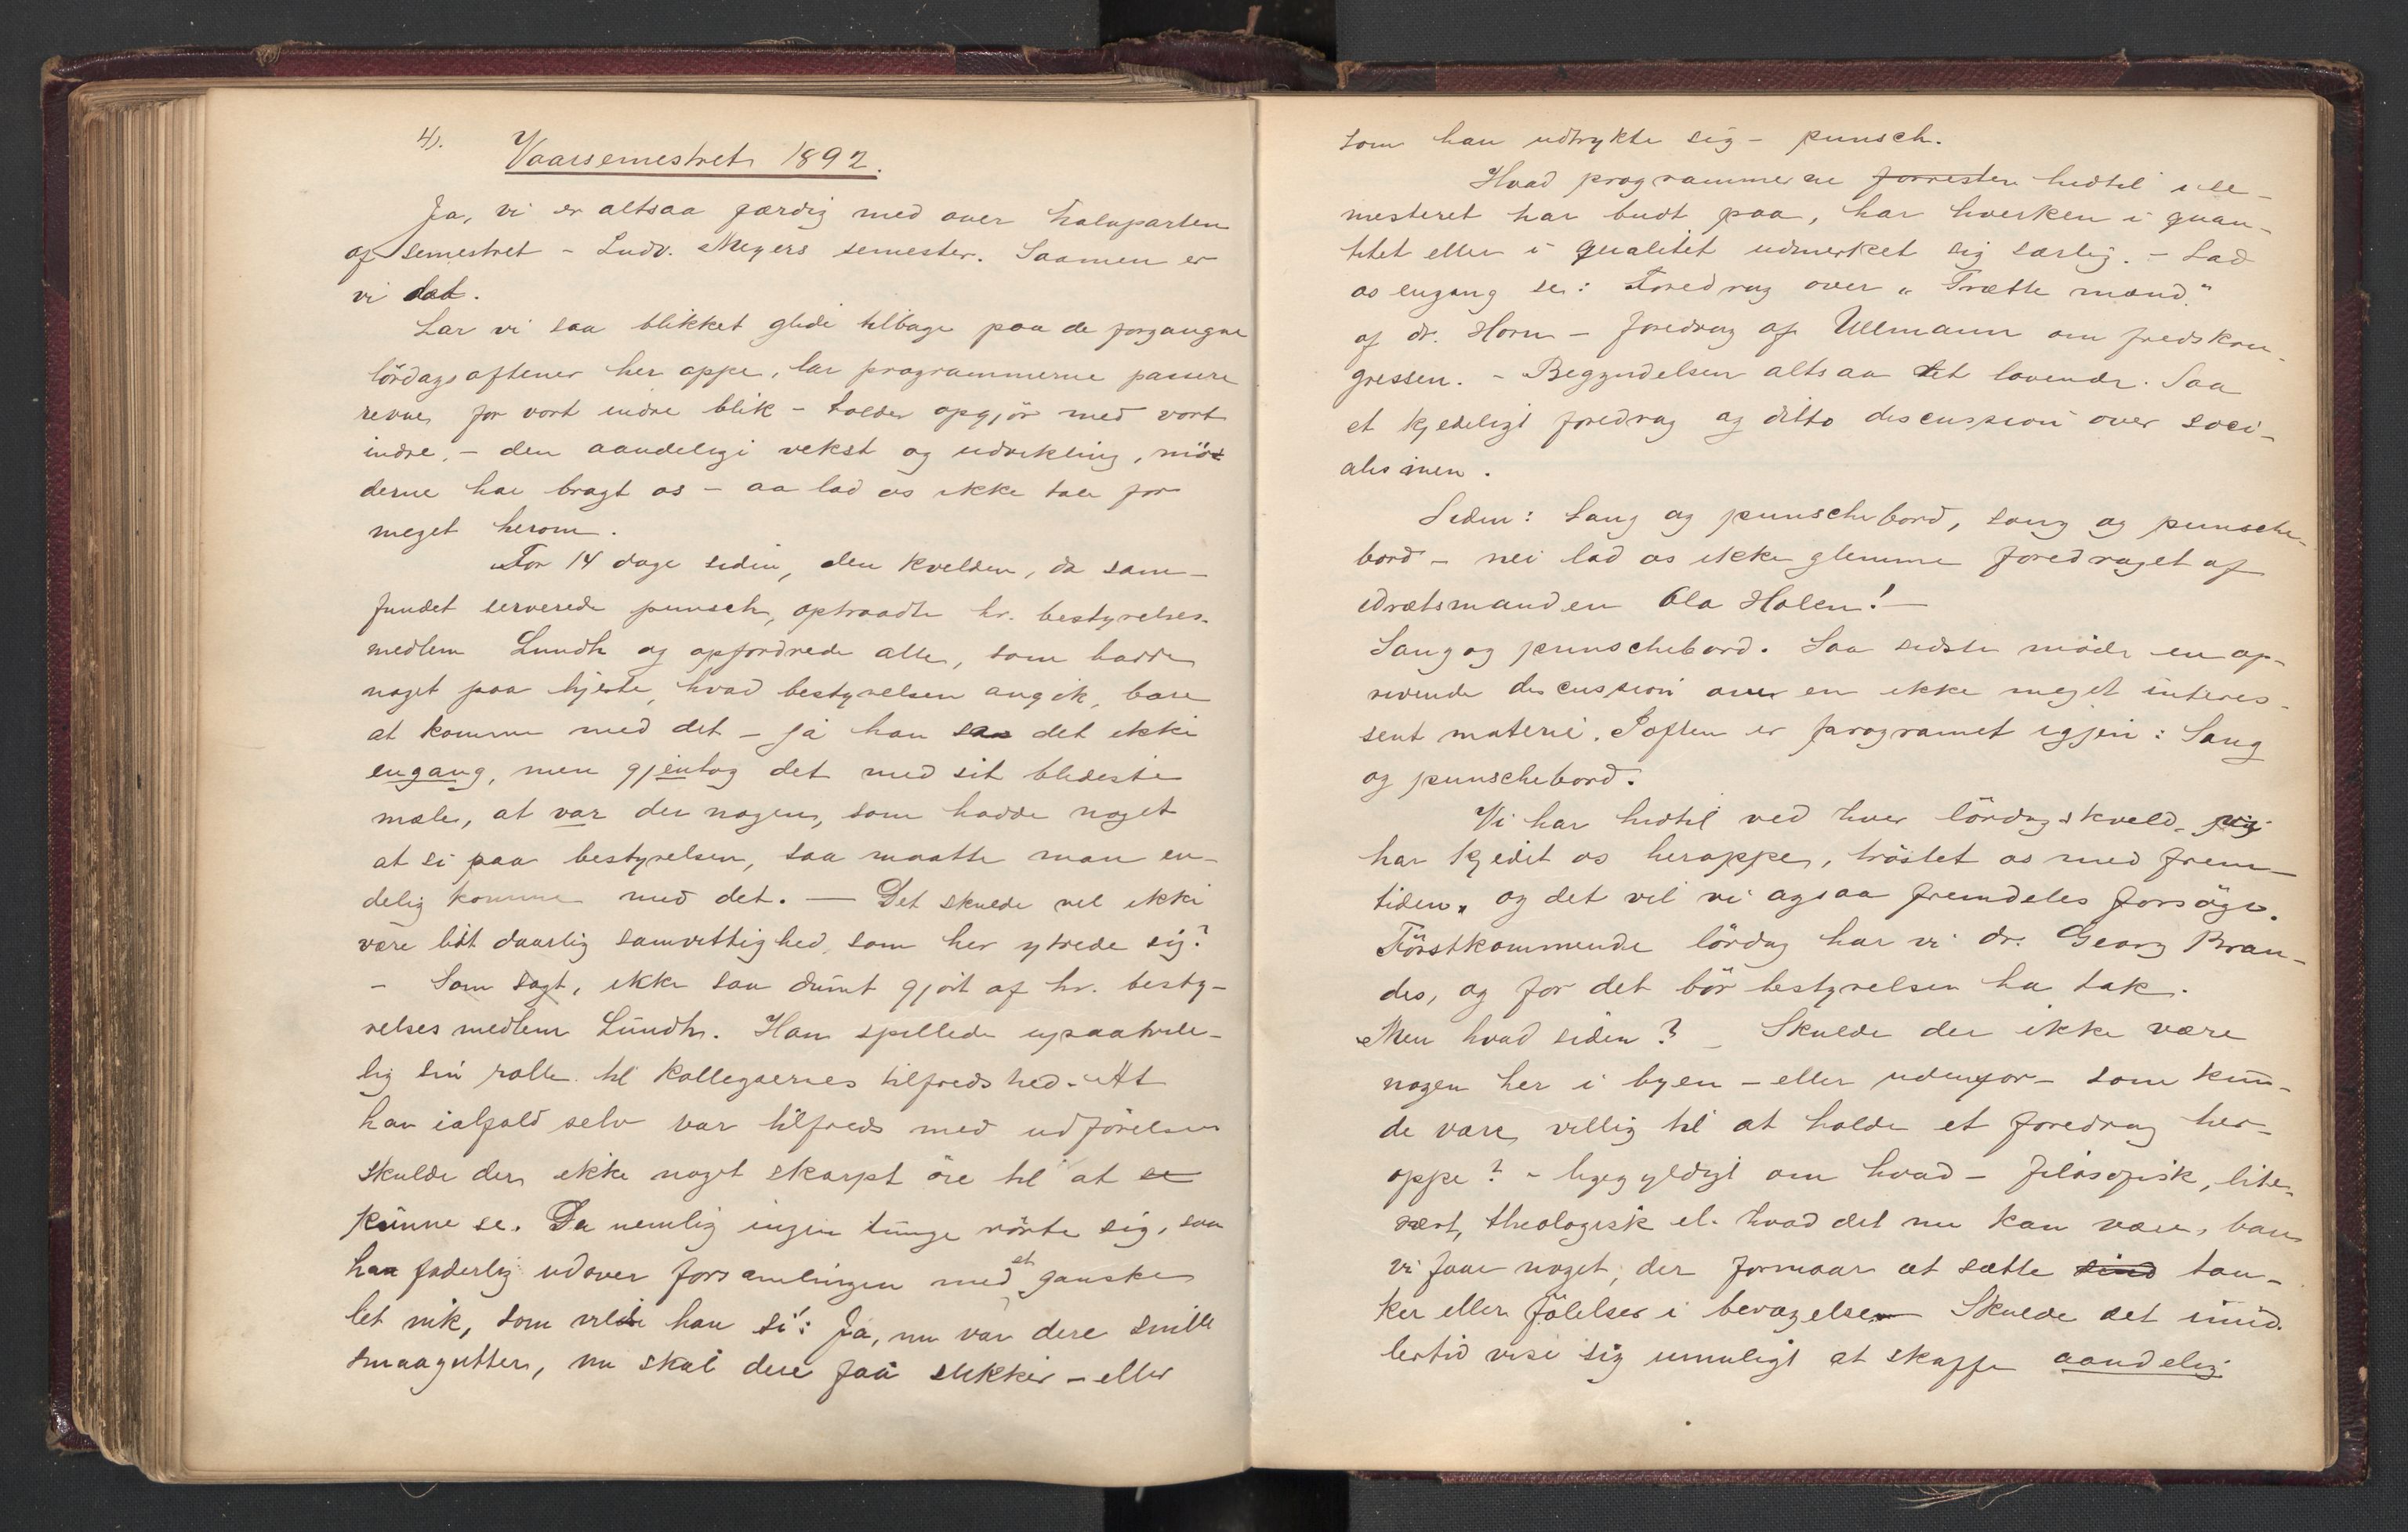 4).
Vaarsemestret 1892.
Ja, vi er altsaa færdig med over halvparten
af semestret - Ludv. Meyers semester. Saamen er
vi det.
Lar vi saa blikket glide tilbage paa de forgangne
lördagsaftener her oppe, lar programmerne passere
revue for vort indre blik - holder opgjör med vort
indre, - den aandelige vekst og udvikling, mö-
derne har bragt os - aa lad os ikke tale for
meget herom.
For 14 dage siden, den kvelden, da sam-
fundet serverede punsch, optraadte hr. bestyrelses-
medlem Lundh og opfordrede alle, som hadde
noget paa hjerte, hvad bestyrelsen angik, bare
at komme med det - ja han sa det ikke
engang, men gjentog det med sit blideste
mæle, at var der nogen, som hadde noget
at si paa bestyrelsen, saa maatte man en-
delig komme med det. — Det skulde vel ikke
være lidt daarlig samvittighed, som her ytrede sig?
- Som sagt, ikke saa dumt gjort af hr. besty-
relsesmedlem Lundh. Han spillede upaatvile-
lig sin rolle til kollegaernes tilfredshed. At
han ialfald selv var tilfreds med udförelsen
skulde der ikke noget skarpt öie til at se
kunne se. Da nemlig ingen tunge rörte sig, saa
han faderlig udover forsamlingen med et ganske
let nik, som vilde han si: Ja, nu var dere snille
smaagutter, nu skal dere faa slikker - eller
som han udtrykte sig - punsch.
Hvad programmerne forresten hidtil i se-
mesteret har budt paa, har hverken i quan-
titet eller i qualitet udmerket sig særlig. - Lad
os engang se: Foredrag over "Trætte mænd"
af dr. Horn - foredrag af Ullmann om fredskon-
gressen. - Begyndelsen altsaa et lovende. Saa
et kjedeligt foredrag og ditto discussion over soci-
alismen.
Siden: Sang og punschebord, sang og punsche-
bord - nei lad os ikke glemme foredraget af
idrætsmanden Ola Holen! —
Sang og punschebord. Saa sidste möde en op-
rivende discussion over en ikke meget interes-
sent materie. I aften er programet igjen: Sang
og punschebord.
Vi har hidtil ved hver lördagskveld, vi
har kjedet os heroppe, tröstet os med frem-
tiden, og det vil vi ogsaa fremdeles forsöge.
Förstkommende lördag har vi dr. Georg Bran-
des, og for det bör bestyrelsen ha tak.
Men hvad siden? - Skulde der ikke være
nogen her i byen - eller udenfor - som kun-
de være villig til at holde et foredrag her-
oppe? - ligegyldigt om hvad - filosofisk, lite-
rært, theologisk el. hvad det nu kan være, bare
vi faar noget, der formaar at sætte sind tan-
ker eller fölelser i bevægelse - Skulde det imid-
lertid vise sig umuligt at skaffe aandelig